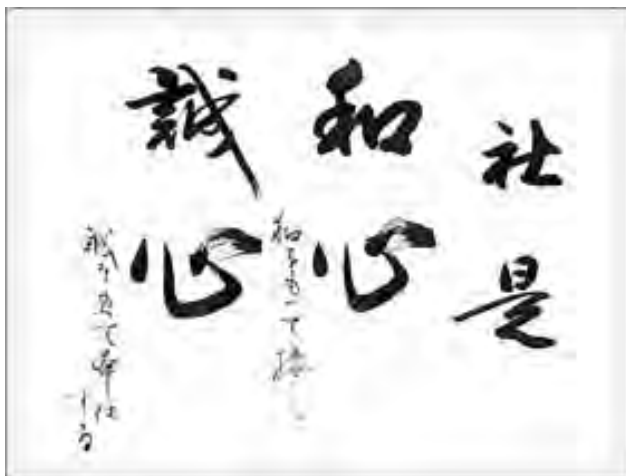 社是
和心
和をもって接し
誠心
誠をもって奉仕する